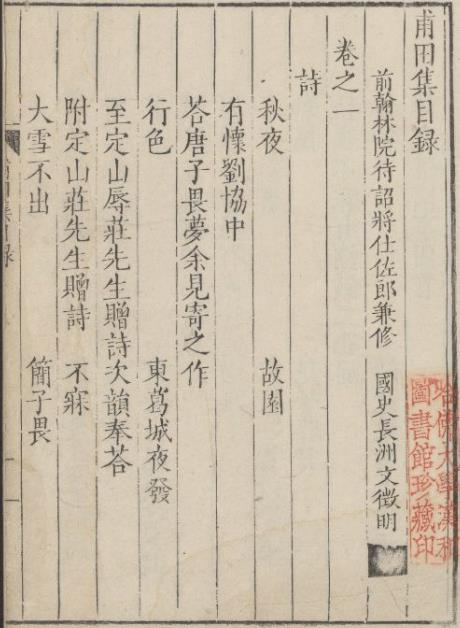 甫田集目録
前翰林院待詔將仕佐郎兼修 國史長洲文徵明
卷之一
詩
秋夜 故園
有懷劉協中
荅唐子畏夢余見寄之作
行色 東葛城夜發
至定山辱莊先生贈詩次韻奉荅
附定山莊先生贈詩 不寐
大雪不出 簡子畏
哈佛大學漢和
圖書館珍藏印